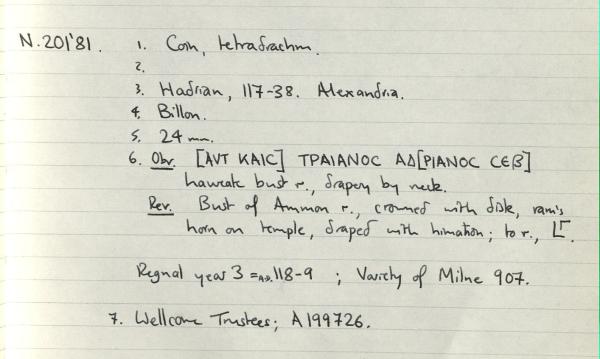 N.201'81. 1. Coin, tetradrachm.
2.
3. Hadrian, 117-38. Alexandria.
4. Billon.
5. 24 mm.
6. Obv. [ΑVΤ ΚΑΙC] ΤΡΑΙΑΝΟC ΑΔ[ΡΙΑΝΟC CΕΒ]
laureate bust r., drapery by neck.
Rev. Bust of Ammon r., crowned with disk, ram's
horn on temple, draped with himation; to r., LΓ.
Regnal year 3 = A.D. 118-9 ; Variety of Milne 907.
7. Wellcome Trustees; A199726.